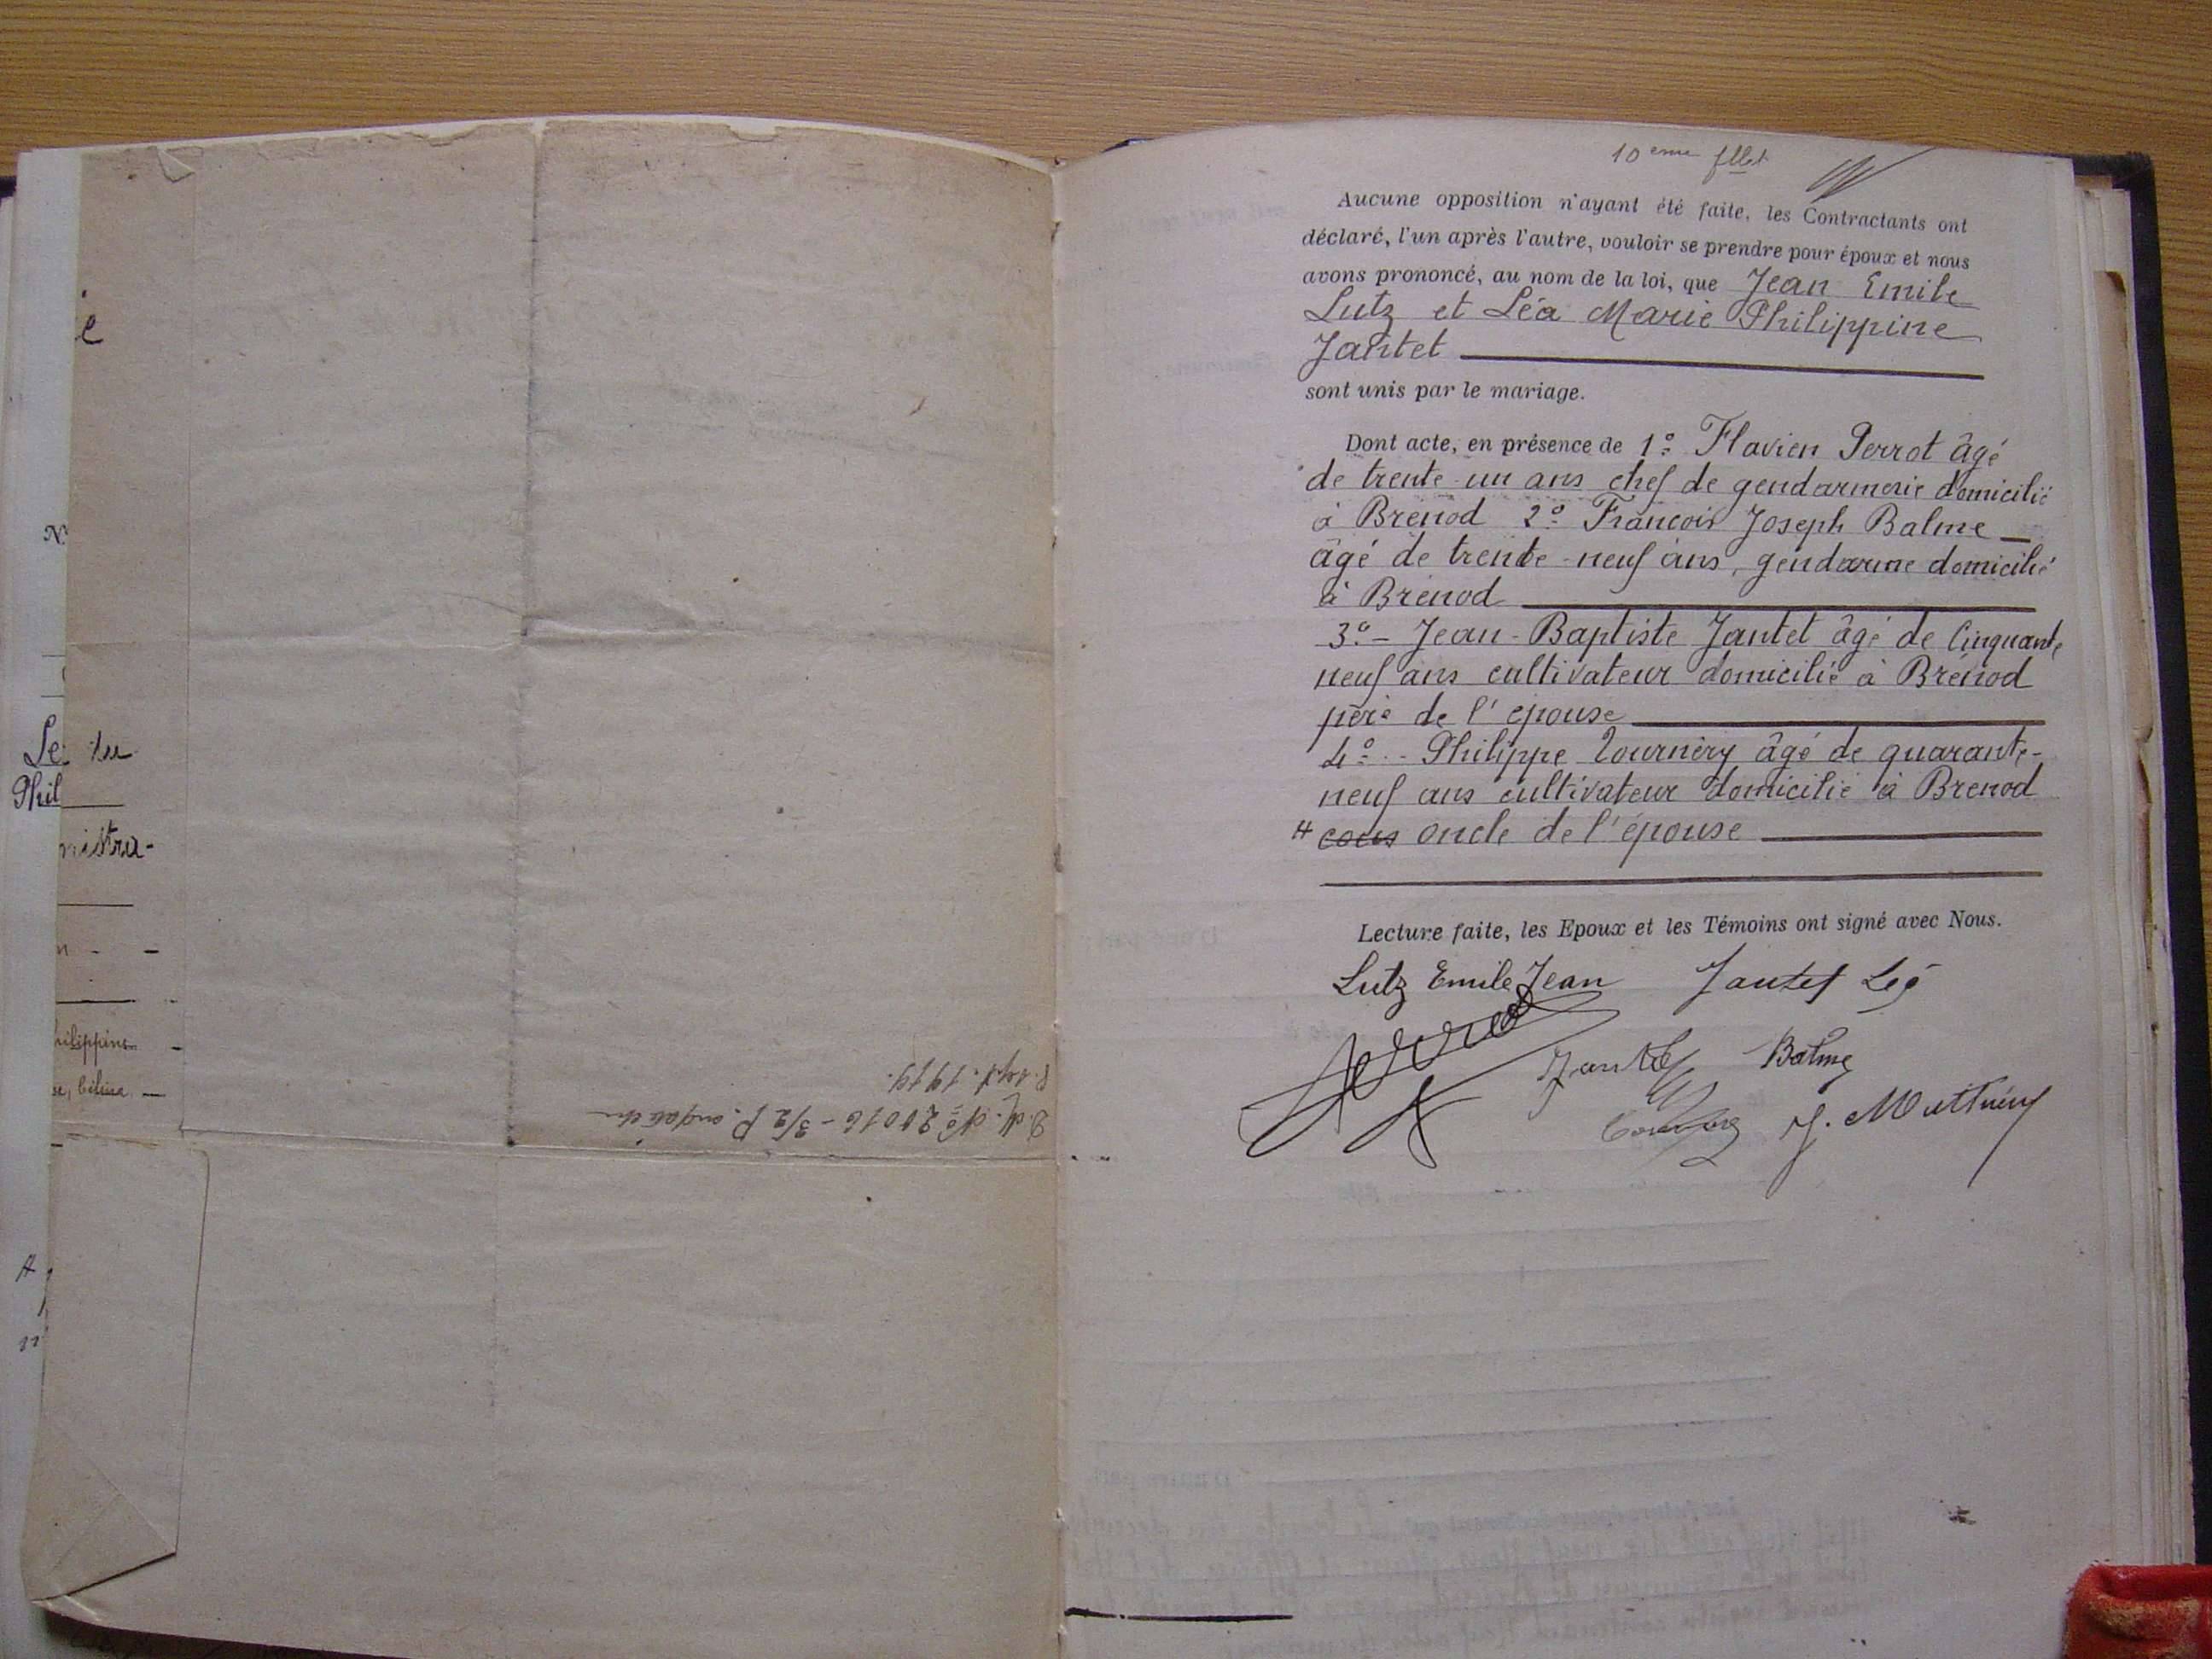 e
N°
Le
tu
Phil
nistra-
n - -
hilippine
10 eme fllet
Aucune opposition n'ayant été faite, les Contractants ont
déclaré, l'un après l'autre, vouloir se prendre pour époux et nous
avons prononcé, au nom de la loi, que Jean Emile
Lutz et Léa Marie Philippine
Jantet
sont unis par le mariage.
Dont acte, en présence de 1° Flavien Perrot âgé
de trente un ans chef de gendarmerie domicilié
à Brenod 2° François Joseph Balme
âgé de trente-neuf ans, gendarme domicilié
à Brenod
3° - Jean-Baptiste Jantet âgé de Cinquante
neuf ans cultivateur domicilié à Brénod
père de l'epouse
4° - Philippe Tournéry âgé de quarante-
neuf ans cultivateur domicilié à Brenod
cous oncle de l'épouse
Lecture faite, les Epoux et les Témoins ont signé avec Nous.
Lutz Emile Jean Jantet Léa
Jantet Balme
D. M. N° 20016 - 3/2 P.
Sept. 1919.